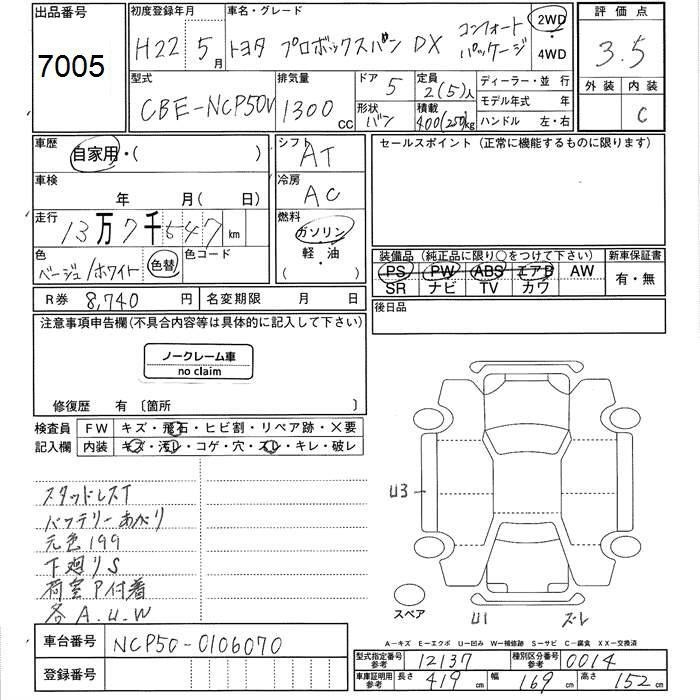 出品番号
7005
初度登録年月
H22 5月
車名・グレード
トヨタ プロボックスバン DX コンフォートパッケージ
2WD
4WD
評価点
3.5
外装 内装
C
型式
CBE-NCP50V
排気量
1300 CC
ドア 5
形状 バン
定員 2(5)人
積載 400(250)kg
ディーラー・並行
モデル年式 年
ハンドル 左・右
車歴
自家用・( )
シフト
AT
セールスポイント (正常に機能するものに限ります)
車検
年 月( 日)
冷房
AC
走行
13万7千547km
燃料
ガソリン
軽・油
( )
色
ベージュ/ホワイト
色替
色コード
装備品 (純正品に限り○をつけて下さい)
PS PW ABS エアB AW
SR ナビ TV カワ
新車保証書
有・無
R券 8,740 円
名変期限 月 日
後日品
注意事項申告欄(不具合内容等は具体的に記入して下さい)
ノークレーム車
no claim
修復歴 有〔箇所 〕
検査員
記入欄
FW キズ・飛石・ヒビ割・リペア跡・×要
内装 キズ・汚レ・コゲ・穴・スレ・キレ・破レ
スタッドレスT
バッテリーあがり
元色199
下廻りS
荷室P付着
各A.U.W
U3
スペア
U1
ズレ
車台番号
NCP50-0106070
登録番号
A−キズ E−エクボ U−凹み W−補修跡 S−サビ C−腐食 XX−交換済
型式指定番号
参考
12137
種別区分番号
参考
0014
車庫証明用
参考
長さ 419cm
幅 169cm
高さ 152cm